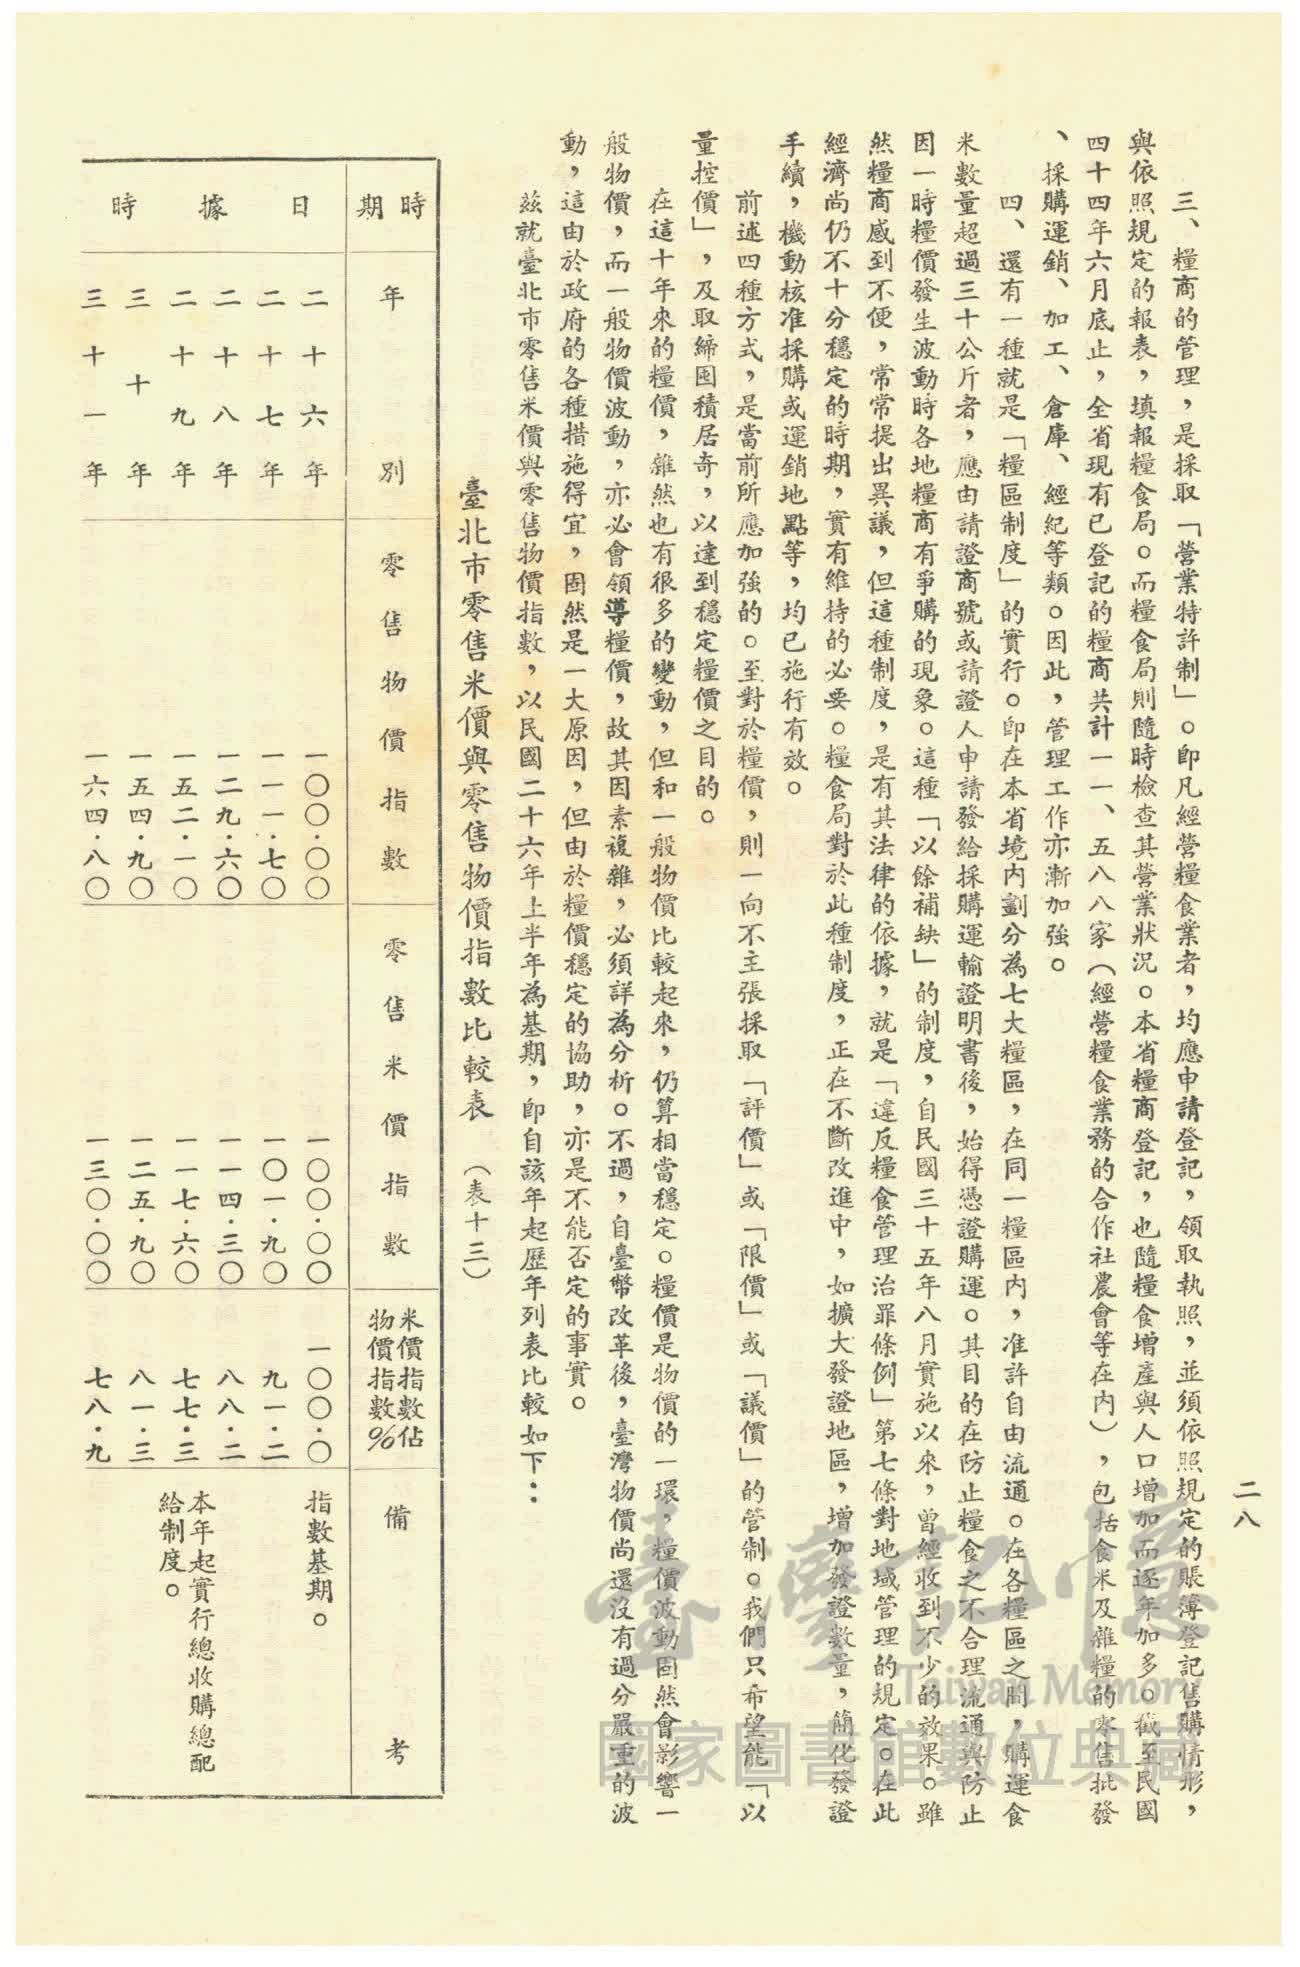 二八
三、糧商的管理，是採取「營業特許制」。卽凡經營糧食業者，均應申請登記，領取執照，並須依照規定的賬簿登記售購情形，
與依照規定的報表，填報糧食局。而糧食局則隨時檢查其營業狀況。本省糧商登記，也隨糧食增產與人口增加而逐年加多。截至民國
四十四年六月底止，全省現有已登記的糧商共計一一、五八八家（經營糧食業務的合作社農會等在內），包括食米及雜糧的零售批發
、採購運銷、加工、倉庫、經紀等類。因此，管理工作亦漸加強。
四、還有一種就是「糧區制度」的實行。卽在本省境內劃分為七大糧區，在同一糧區內，准許自由流通。在各糧區之間，購運食
米數量超過三十公斤者，應由請證商號或請證人申請發給採購運輸證明書後，始得憑證購運。其目的在防止糧食之不合理流通與防止
因一時糧價發生波動時各地糧商有爭購的現象。這種「以餘補缺」的制度，自民國三十五年八月實施以來，曾經收到不少的效果。雖
然糧商感到不便，常常提出異議，但這種制度，是有其法律的依據，就是「違反糧食管理治罪條例」第七條對地域管理的規定。在此
經濟尚仍不十分穩定的時期，實有維持的必要。糧食局對於此種制度，正在不斷改進中，如擴大發證地區，增加發證數量，簡化發證
手續，機動核准採購或運銷地點等，均已施行有效。
前述四種方式，是當前所應加強的。至對於糧價，則一向不主張採取「評價」或「限價」或「議價」的管制。我們只希望能「以
量控價」，及取締囤積居奇，以達到穩定糧價之目的。
在這十年來的糧價，雖然也有很多的變動，但和一般物價比較起來，仍算相當穩定。糧價是物價的一環，糧價波動固然會影響一
般物價，而一般物價波動，亦必會領導糧價，故其因素複雜，必須詳為分析。不過，自臺幣改革後，臺灣物價尚還沒有過分嚴重的波
動，這由於政府的各種措施得宜，固然是一大原因，但由於糧價穩定的協助，亦是不能否定的事實。
茲就臺北市零售米價與零售物價指數，以民國二十六年上半年為基期，卽自該年起歷年列表比較如下：
臺北市零售米價與零售物價指數比較表 （表十三）
時期 年別 零售物價指數 零售米價指數 米價指數佔物價指數% 備考
日據時
二十六年 一〇〇·〇〇 一〇〇·〇〇 一〇〇·〇 指數基期。
二十七年 一一一·七〇 一〇一·九〇 九一·二
二十八年 一二九·六〇 一一四·三〇 八八·二
二十九年 一五二·一〇 一一七·六〇 七七·三 本年起實行總收購總配給制度。
三十年 一五四·九〇 一二五·九〇 八一·三
三十一年 一六四·八〇 一三〇·〇〇 七八·九
臺灣記憶
Taiwan Memory
國家圖書館數位典藏